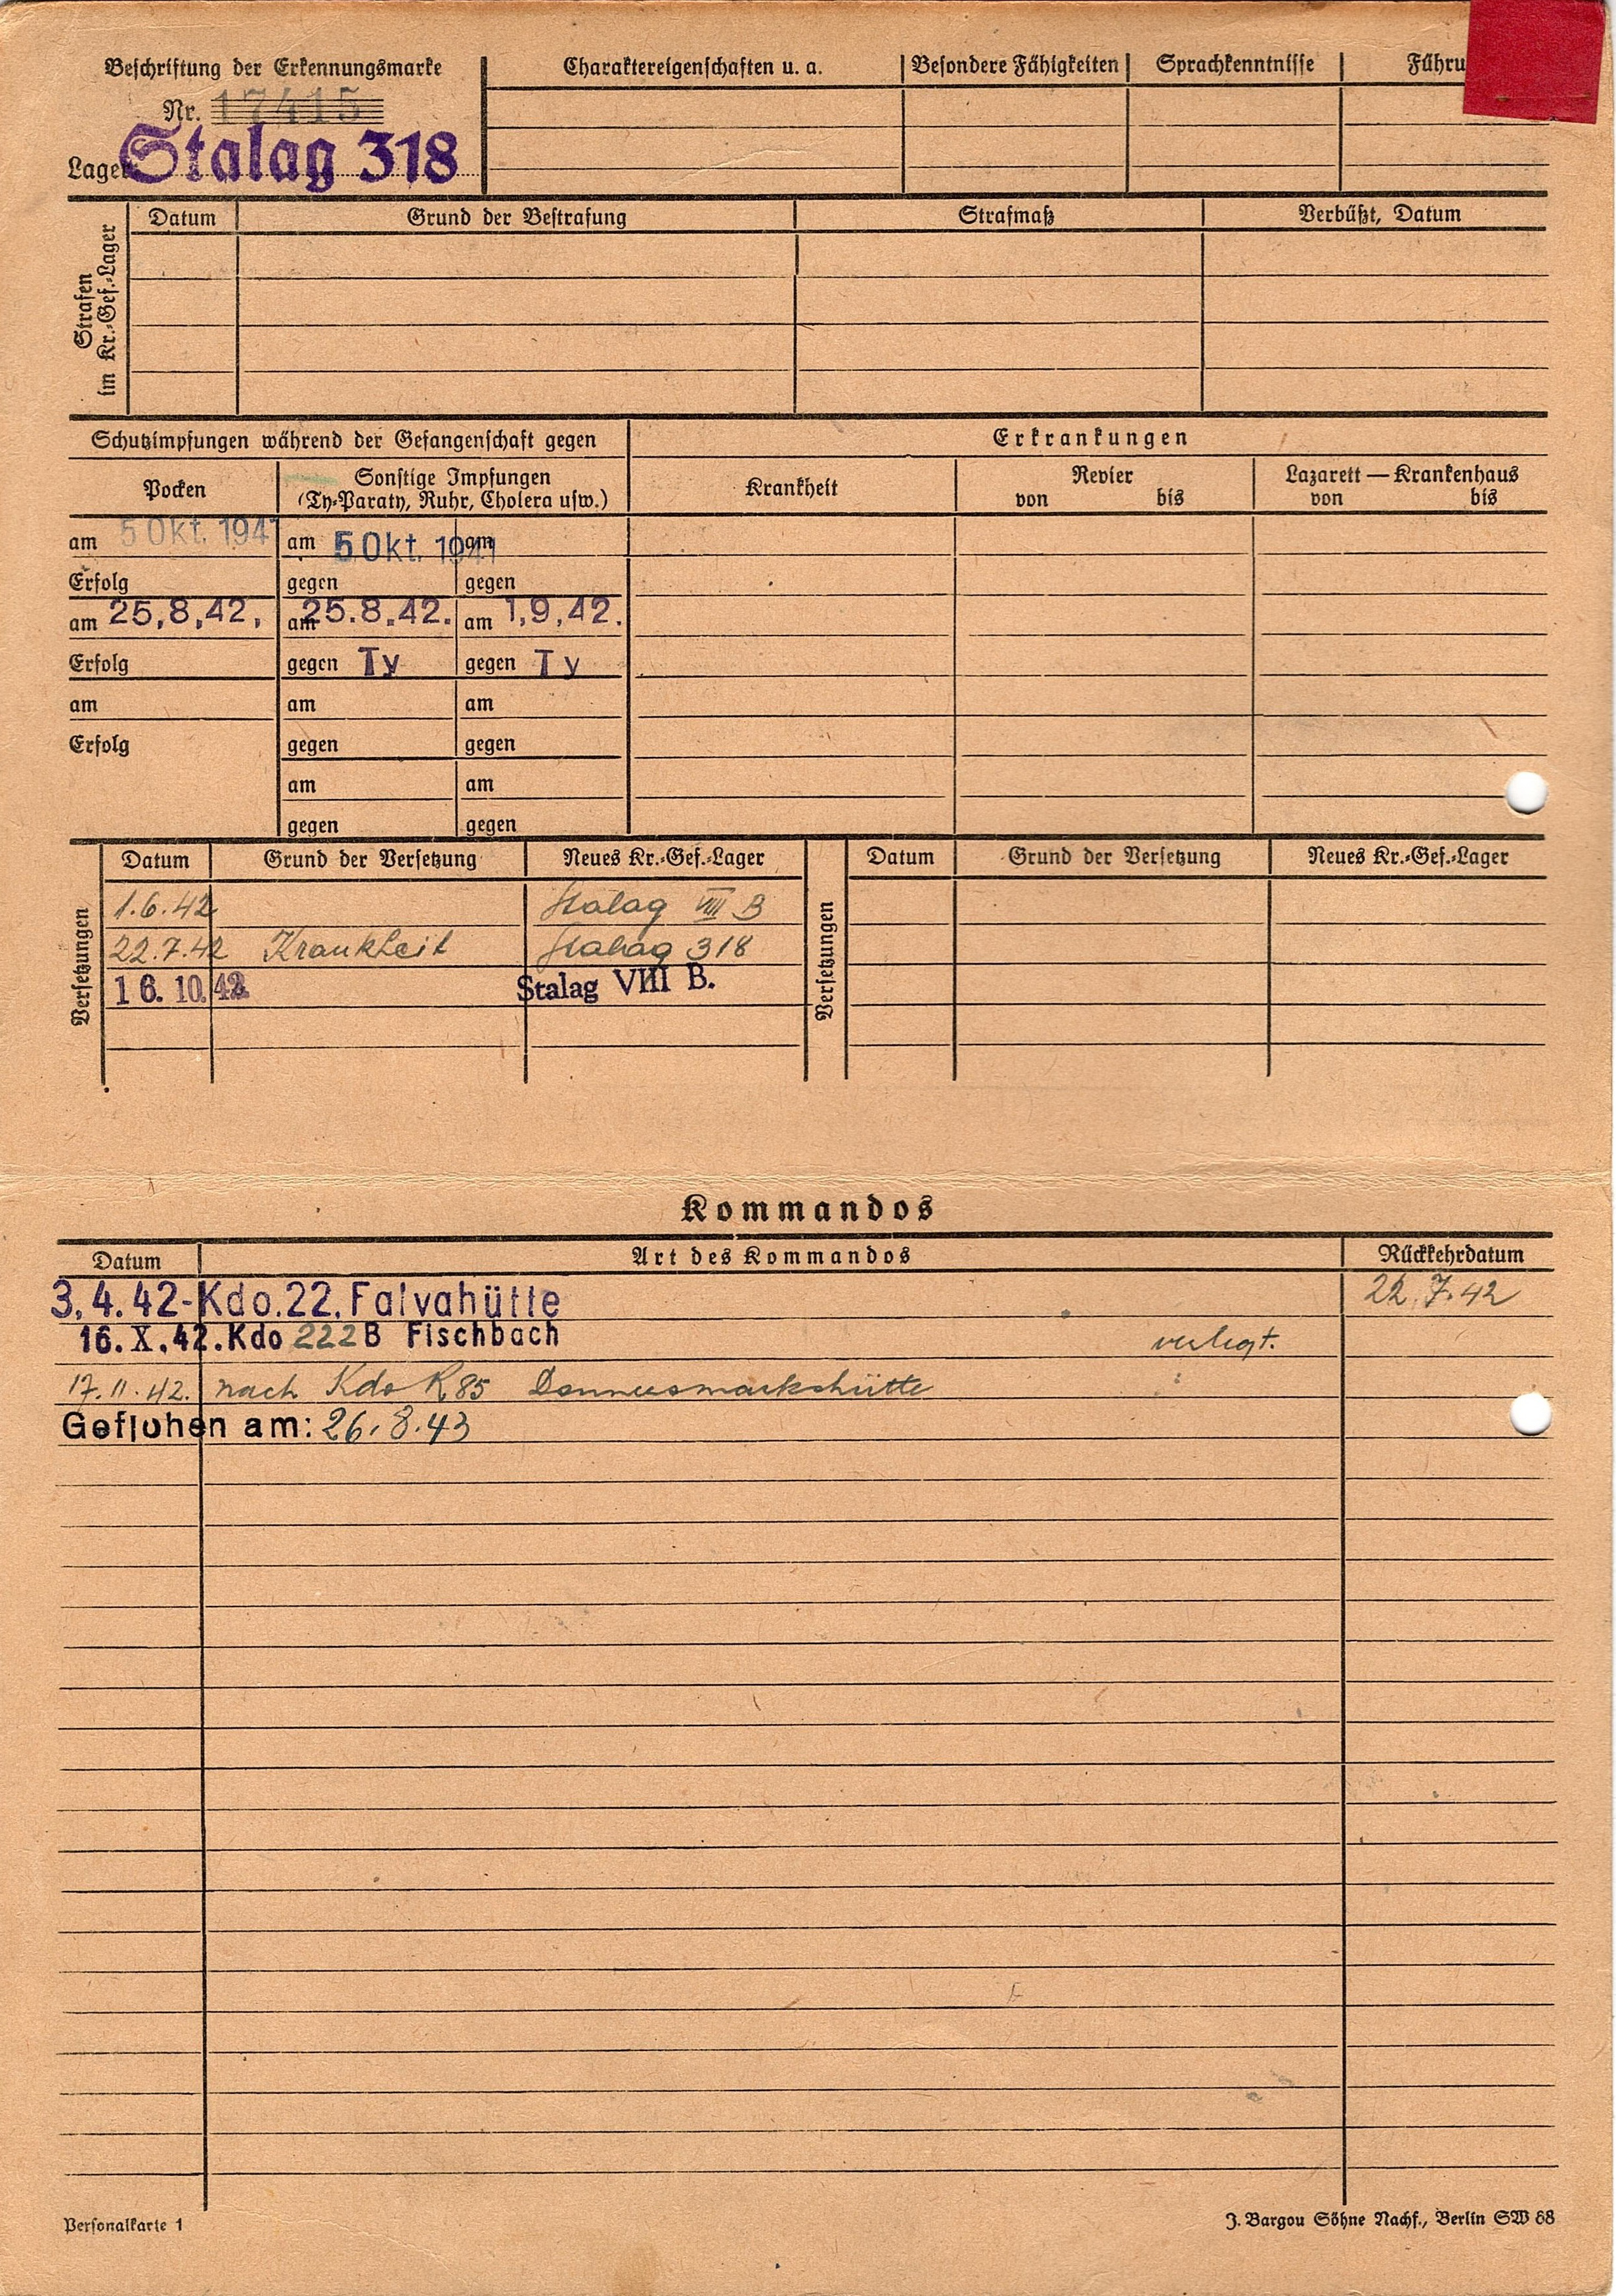 Beschriftung der Erkennungsmarke
Nr. 17415
Lager: Stalag 318
Charaktereigenschaften u. a.
Besondere Fähigkeiten
Sprachkenntnisse
Führu
Strafen
im Kr.-Gef.-Lager
Datum
Grund der Bestrafung
Strafmaß
Verbüßt, Datum
Schutzimpfungen während der Gefangenschaft gegen
Erkrankungen
Pocken
Sonstige Impfungen
(Ty-Paraty, Ruhr, Cholera usw.)
Krankheit
Revier
von bis
Lazarett — Krankenhaus
von bis
am 5 Okt. 1941 am 5 Okt. 1941 am
Erfolg gegen gegen
am 25.8.42. am 25.8.42. am 1.9.42.
Erfolg gegen Ty gegen Ty
am am am
Erfolg gegen gegen
am am
gegen gegen
Versetzungen
Datum Grund der Versetzung Neues Kr.-Gef.-Lager
1.6.42 Stalag VIII B
22.7.42 Krankheit Stalag 318
16. 10. 42. Stalag VIII B.
Versetzungen
Datum Grund der Versetzung Neues Kr.-Gef.-Lager
Kommandos
Datum Art des Kommandos Rückkehrdatum
3.4.42-Kdo.22. Falvahütte 22.7.42
16.X.42. Kdo 222 B Fischbach verlegt.
17.11.42. nach Kdo R 85 Donnersmarckshütte
Geflohen am: 26.8.43
Personalkarte 1
J. Bargou Söhne Nachf., Berlin SW 68